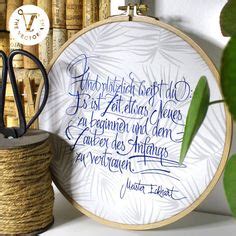 Und plötzlich weißt du:
Es ist Zeit etwas Neues
zu beginnen und dem
Zauber des Anfangs
zu vertrauen.
Meister Eckhart